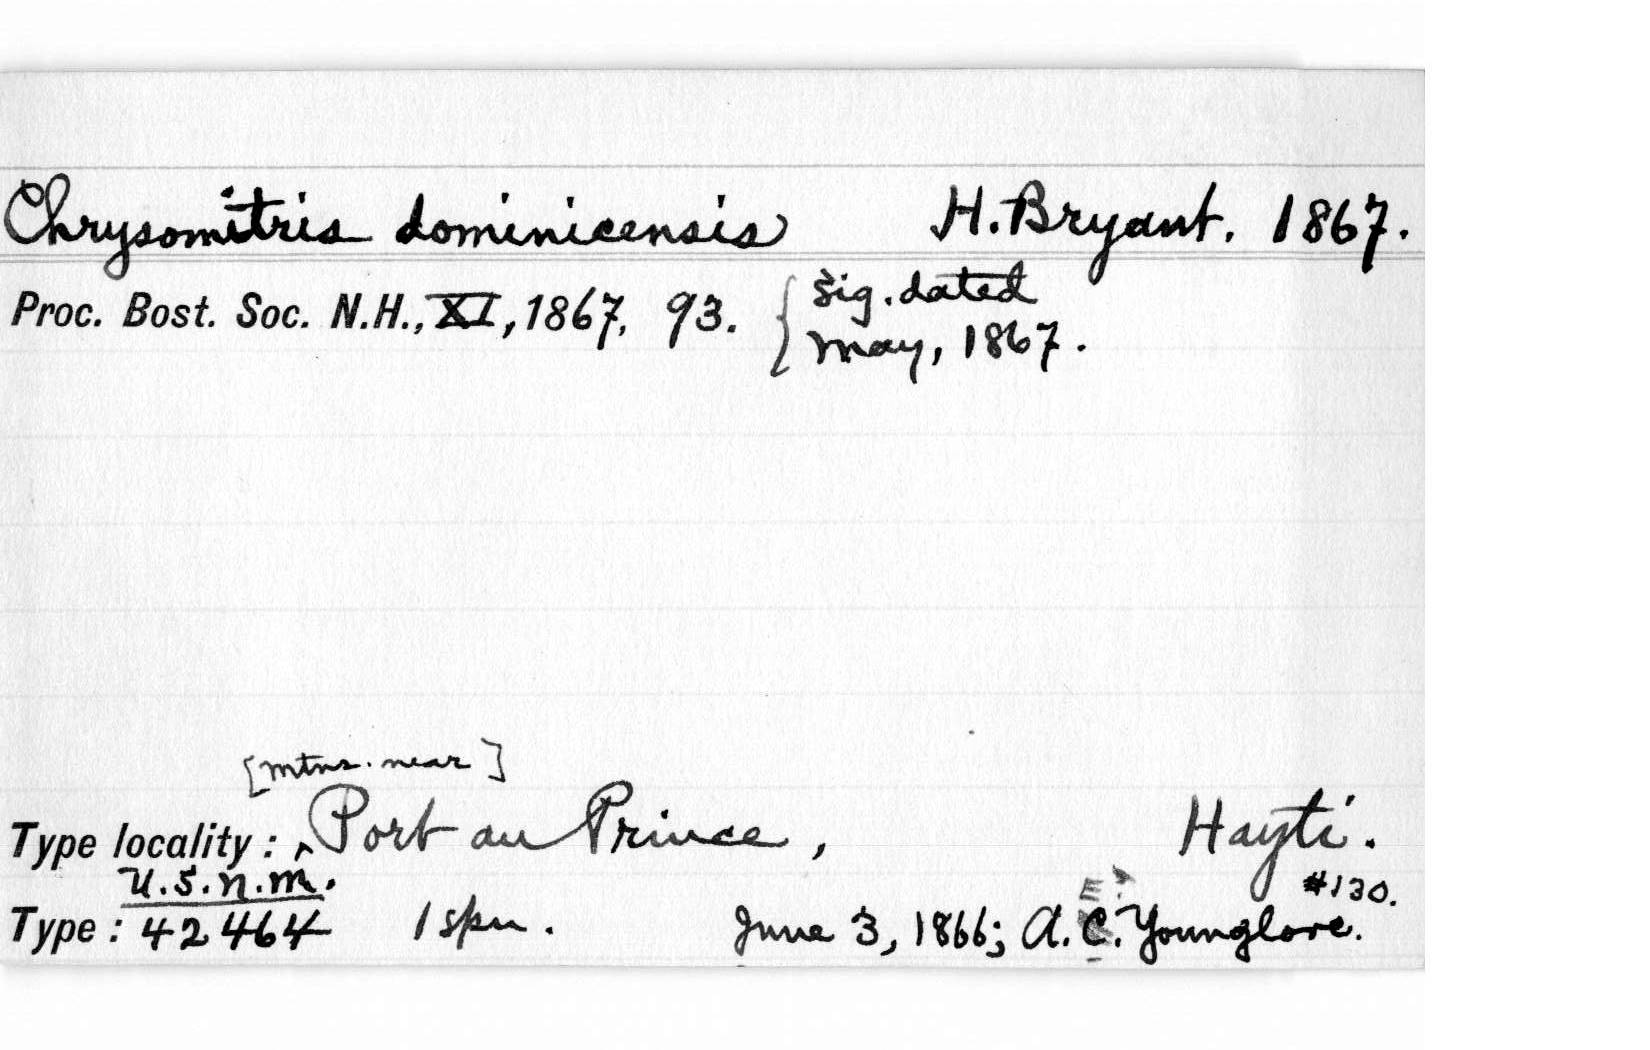 Chrysomitris dominicensis H. Bryant. 1867.
Proc. Bost. Soc. N.H., XI, 1867, 93. { sig. dated
May, 1867.
[mtns. near]
Type locality: ^ Port au Prince, Hayti.
U.S.N.M. #130.
Type: 42464 1 spn. June 3, 1866; A. C. Younglove.